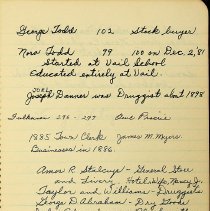 George Todd 102 Stock buyer
Nora Todd 99 100 on Dec. 2, '81
Started at Vail School
Educated entirely at Vail.
Joseph Danner was Druggist about 1898
296-297
1885 Town Clerk James M. Myers
Businesses in 1886.
Amos R. Stalcup - General Store
and Livery Hotel Wife, Nancy J.
Taylor and Williams - Druggists
George D. Abraham - Dry Goods